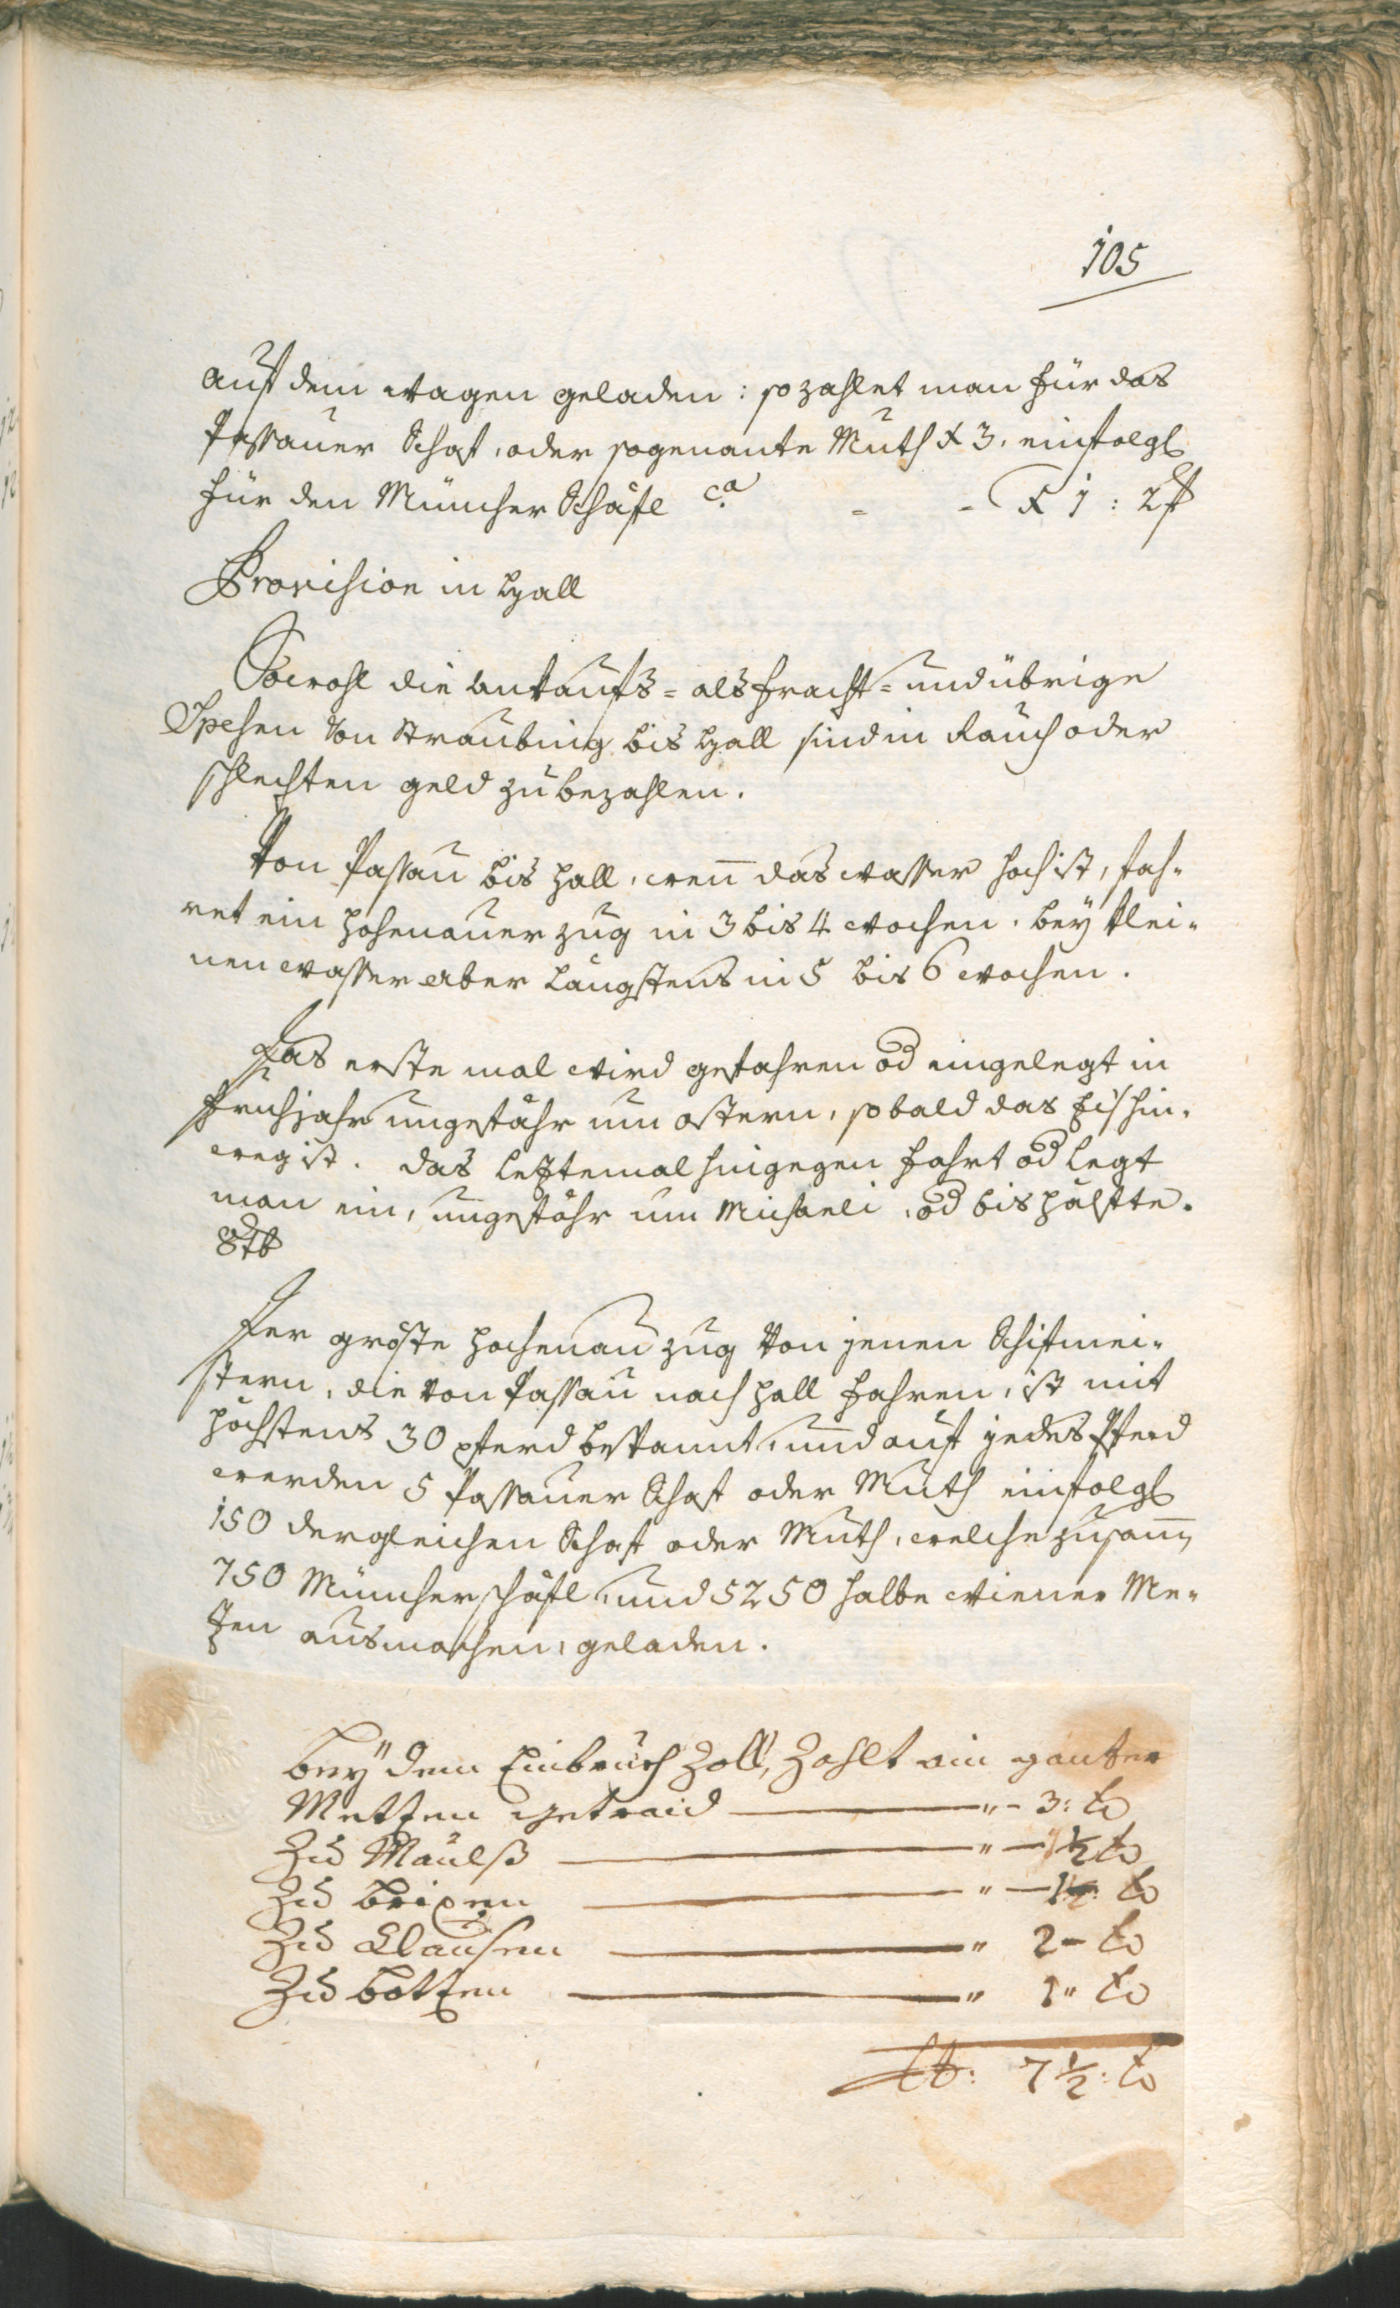 105
auf dem wagen geladen: so zahlet man für das
Passauer Schaf, oder sogenante Muth x 3. einfolgl
für den Müncher Schäfl ca - - x 1: 2 ₰
Provision in Hall
Sowohl die ankaufs= als fracht= und übrige
Spesen von Straubing bis Hall sind in Rauch oder
schlechten geld zu bezahlen.
Von Passau bis Hall, wen̄ das wasser hoch ist, fah-
ret ein Hohenauer zug in 3 bis 4 wochen. bey klei-
nen wasser aber längstens in 5 bis 6 wochen.
Das erste mal wird gefahren od eingelegt in
frühjahr ungefähr um ostern, sobald das Eis hin-
weg ist. das letztemal hingegen fahrt od legt
man ein, ungefähr um Michaeli, od bis hälfte
8tb
Der gröste Hochenau zug von jenen Schifmei-
stern, die von Passau nach Hall fahren, ist mit
höchstens 30 pferd bespannt, und auf jedes Pferd
werden 5 Passauer Schaf oder Muth einfolgl
150 dergleichen Schaf oder Muth, welche zusam̄
750 Müncher schäfl, und 5250 halbe wiener Me-
tzen ausmachen, geladen.
Bey dem Einbruch Zoll, Zahlt ain gantzer
Metzen getraid " - 3: xr
Zu Maulß " - 1½ xr
Zu Brixen " - 1 xr
Zu Clausen " 2 - xr
Zu Botzen " 1 " xr
7½: xr